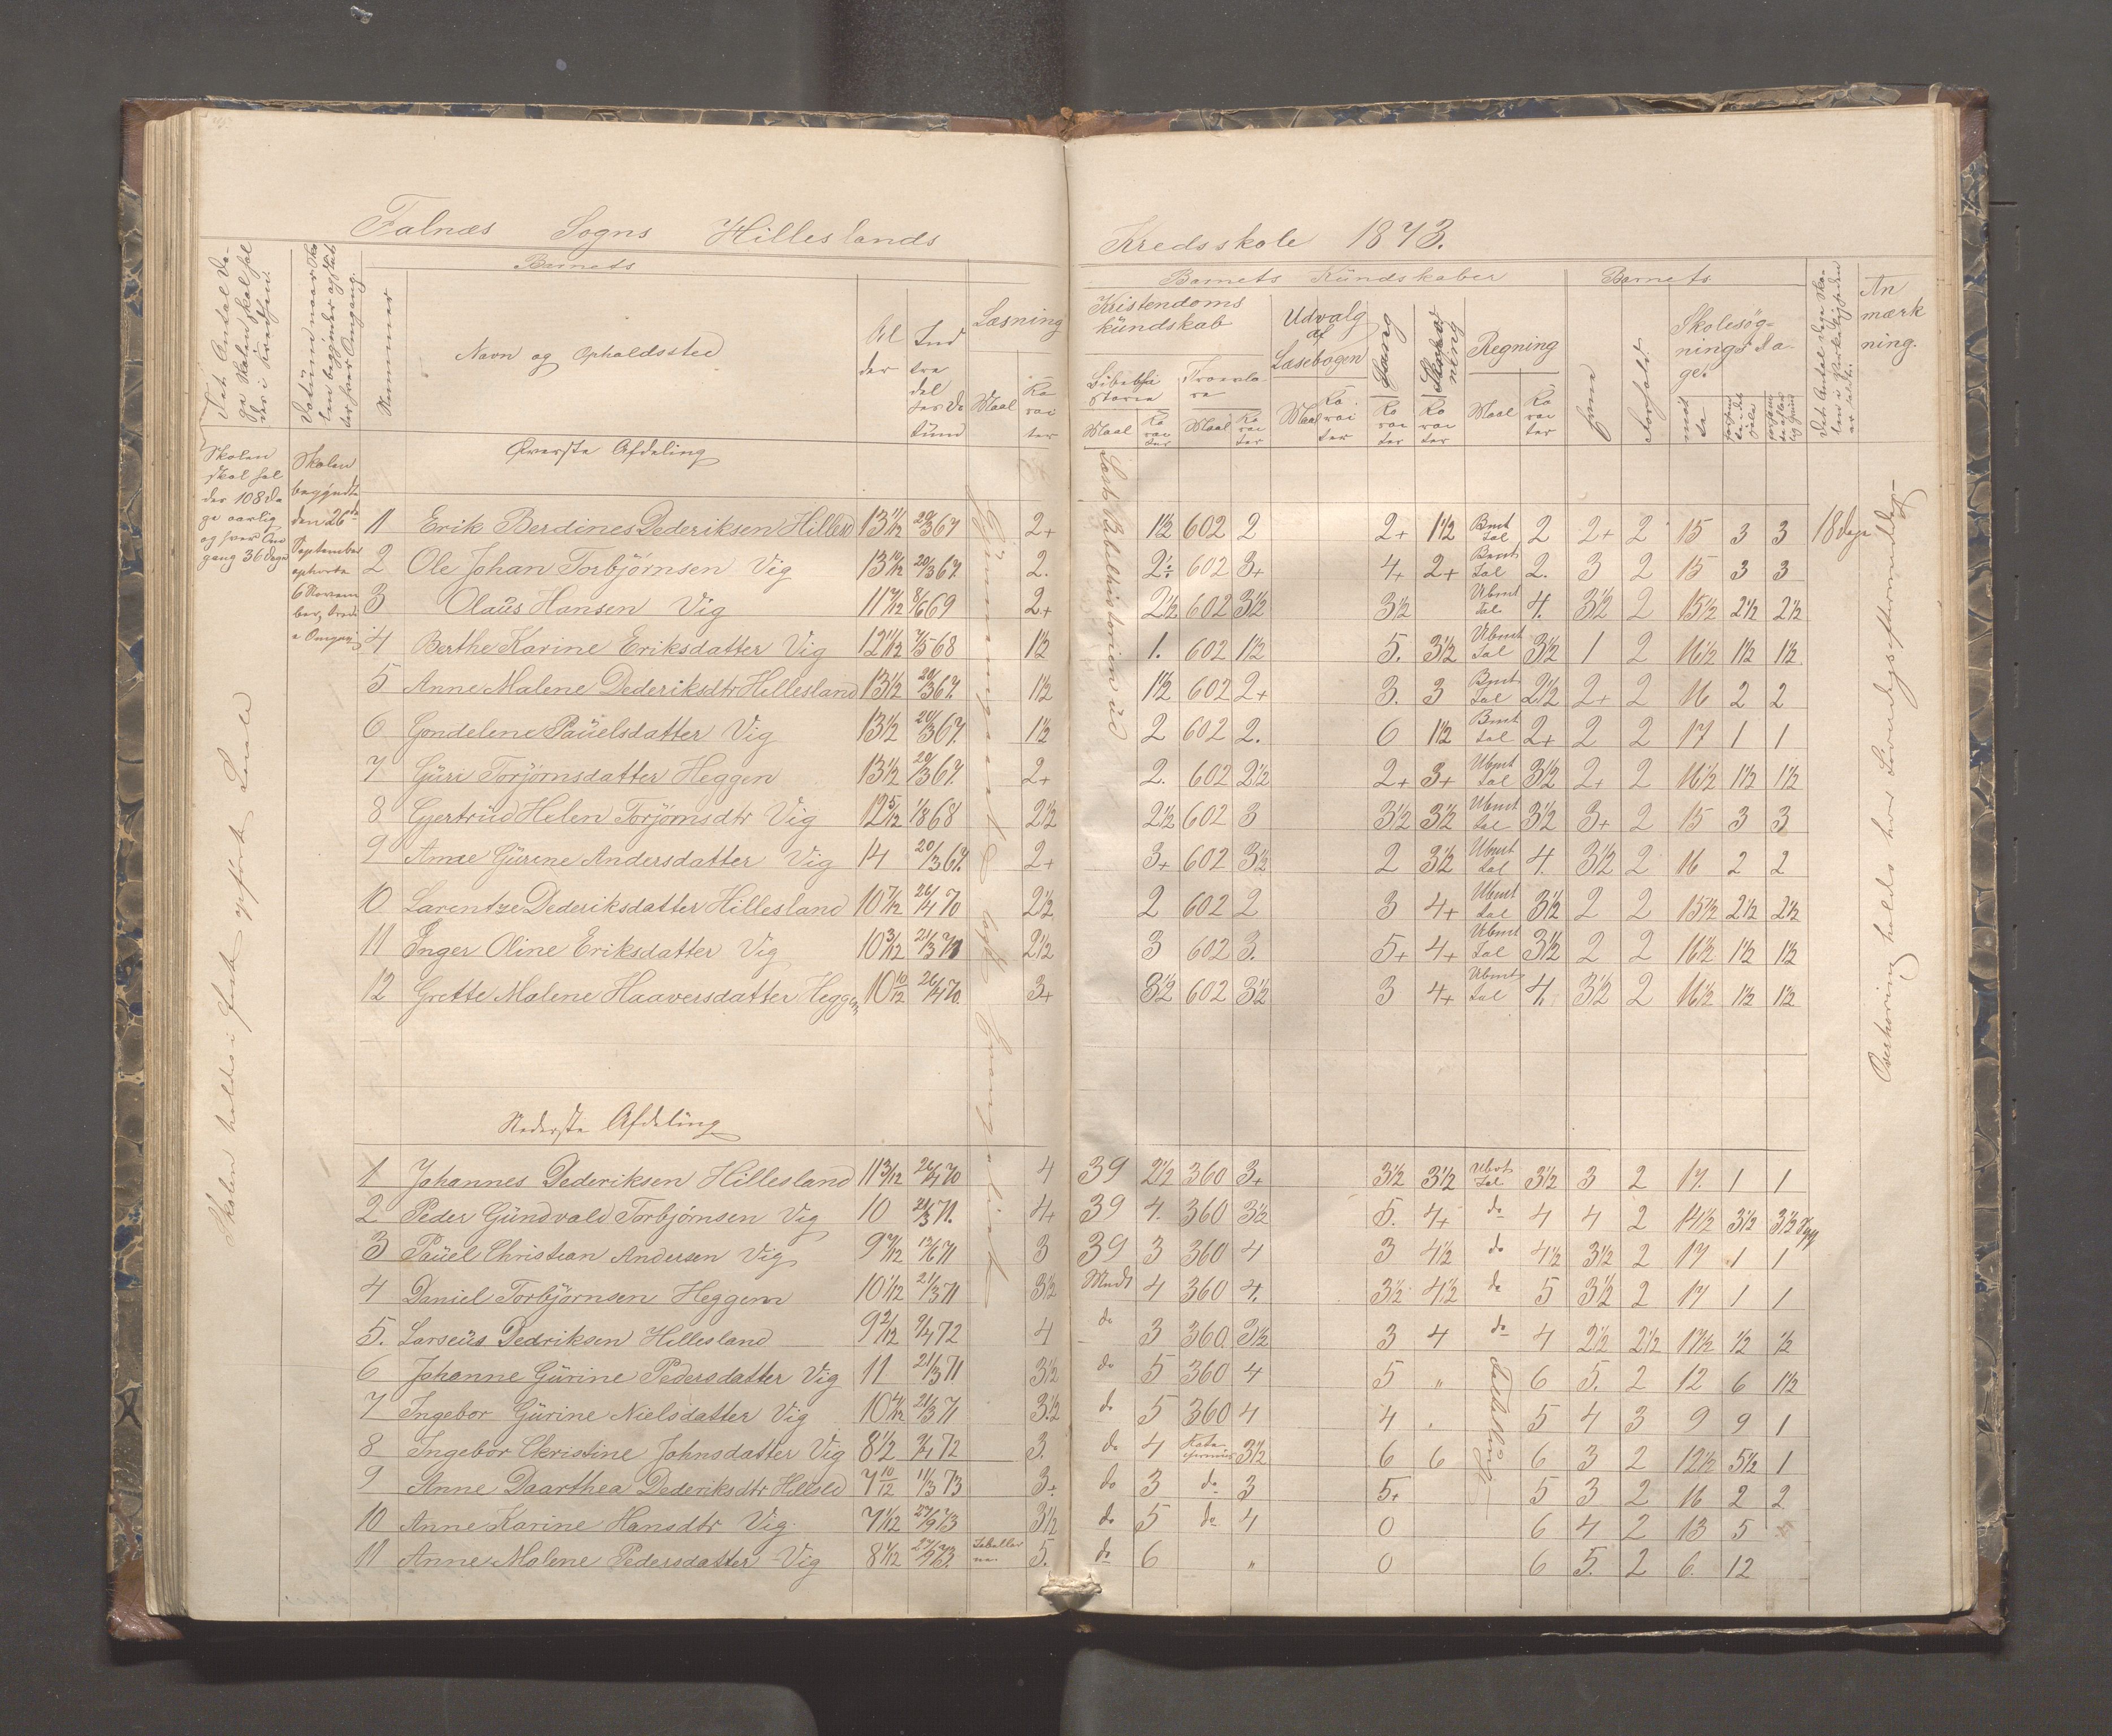 Falnæs Sogns Hilleslands Kredsskole 1873.
Barnets
Barnets Kündskaber
Barnets
Det Antal Da-
ge Skolen skal hol
des i Kredsen.
Datüm naar Sko
len begynder og slut
ter hver Omgang.
Nummer
Navn og Opholdssted
Al
der
Ind
træ
del
ses Da
tüm
Læsning
Maal
Ka
rac
ter
Kristendoms
kündskab
Bibelhi
storie
Maal
Ka
rac
ter
Forkla-
re
Maal
Ka
rac
ter
Udvalg
af
Læsebogen
Maal
Ka
rac
ter
Sang
Ka
rac
ter
Skriv
ning
Ka
rac
ter
Regning
Maal
Ka
rac
ter
Evne
Forhold.
Skolesøg-
nings Da-
ge.
mød
te
forsøm
te i det
hele
An
mærk
ning.
Skolen
skal hol
des 108 Da
ge aarlig
og hver Om
gang 36 Dage
Skolen
begyndte
den 26de
September
ophørte
6 Novem
ber, Tred
e Omgang
Skolen holdes i første opførte Locale
Øverste Afdeling
Gjennemgaaet
Læst Bibelhistorien üd
Overhøring holdes hver Løverdagseftermiddag
1 Erik Berdines Dederiksen Hillesd 13 11/12 20/3 67 2+ 1½ 602 2 2+ 1½ Bmt Tal 2 2+ 2 15 3 3 18 Dage
2 Ole Johan Torbjørnsen Vig 13 10/12 20/3 67. 2. 2÷ 602 3+ 4+ 2+ Bmt Tal 2. 3 2 15 3 3
3 Olaüs Hansen Vig 11 9/12 8/6 69 2+ 2½ 602 3½ 3½ Ubmt Tal 4. 3½ 2 15½ 2½ 2½
4 Berthe Karine Eriksdatter Vig 12 11/12 7/5 68 1½ 1. 602 1½ 5. 3½ Ubmt Tal 3½ 1 2 16½ 1½ 1½
5 Anne Malene Dederiksdtr Hillesland 13½ 20/3 67. 1½ 1½ 602 2+ 3. 3 Bmt Tal 2½ 2+ 2 16 2 2
6 Gondelene Paüelsdatter Vig 13½ 20/3 67. 1½ 2 602 2. 6 1½ Bmt Tal 2+ 2 2 17 1 1
7 Güri Torjörnsdatter Heggen 13½ 20/3 67. 2+ 2. 602 2½ 2+ 3+ Ubmt Tal 3½ 2+ 2 16½ 1½ 1½
8 Gjertrüd Helen Torjörnsdtr Vig 12 5/12 1/8 68 2½ 2½ 602 3 3½ 3½ Ubmt Tal 3½ 3+ 2 15 3 3
9 Anne Gürine Andersdatter Vig 14 20/3 67. 2+ 3+ 602 3½ 2 3½ Ubmt Tal 4. 3½ 2 16 2 2
10 Larentze Dederiksdatter Hillesland 10 7/12 26/4 70 2½ 2 602 2 3 4+ Ubmt Tal 3½ 2 2 15½ 2½ 2½
11 Inger Oline Eriksdatter Vig 10 3/12 21/3 71 2½ 3 602 3. 5+ 4+ Ubmt Tal 3½ 2 2 16½ 1½ 1½
12 Grette Malene Haaversdatter Heggen 10 10/12 26/4 70. 3+ 3½ 602 3½ 3 4+ Ubmt Tal 4. 3½ 2 16½ 1½ 1½
Nederste Afdeling
1 Johannes Dederiksen Hillesland 11 3/12 26/4 70 4 39 2½ 360 3+ 3½ 3½ Ubmt Tal 3½ 3 2 17. 1 1
2 Peder Gündvald Torbjørnsen Vig 10 21/3 71. 4+ 39 4. 360 3½ 5. 4+ do 4 4 2 14½ 3½ 3½
3 Paüel Christian Andersen Vig 9 9/12 12/6 71 3 39 3 360 4 3 4½ do 4½ 3½ 2 17 1 1
4 Daniel Torbjørnsen Heggem 10 1/12 21/3 71 3½ Mndt 4 360 4. 3½ 4½ do 5 3½ 2 17 1 1
5. Larseüs Dedriksen Hillesland 9 2/12 9/4 72 4 do 3 360. 3½ 3 4 do 4 2½ 2½ 17½ ½ ½
6 Johanne Gürine Pedersdatter Vig 11 21/3 71 3½ do 5 360 4 5 " 6 5. 2 12 6 1½
7 Ingebor Gürine Nielsdatter Vig 10 4/12 21/3 71 3½ do 5 360 4 4 " 5 4 3 9 9 1
8 Ingebor Christine Johnsdatter Vig 8½ 9/4 72 3. do 4 Kate-chismüs 3½ 6 6 6 3 2 12½ 5½ 1
9 Anne Daarthea Dederiksdtr Hillsld 7 10/12 11/3 73 3+ do 3 do 3 5+ 5 3 2 16 2 2
10 Anne Karine Hansdtr Vig. 7 11/12 27/9 73 3½ do 5 do 4 0 6 4 2 13 5
11 Anne Malene Pedersdatter Vig 8 1/12 27/9 73. 5. do 6 " 0 6 5. 2 6. 12